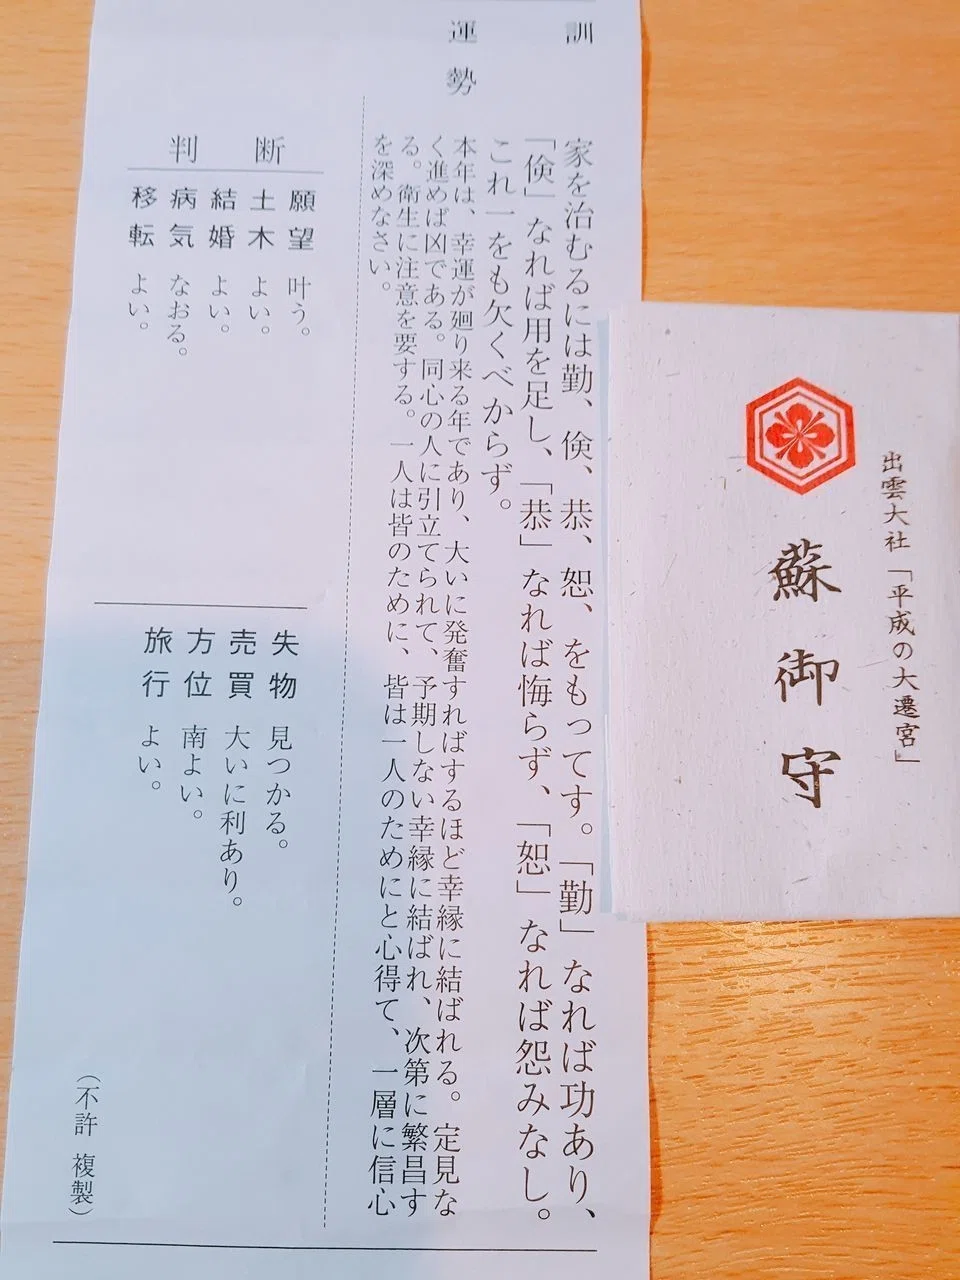 訓
家を治むるには勤、倹、恭、恕、をもってす。「勤」なれば功あり、
「倹」なれば用を足し、「恭」なれば悔らず、「恕」なれば怨みなし。
これ一をも欠くべからず。
運勢
本年は、幸運が廻り来る年であり、大いに発奮すればするほど幸縁に結ばれる。定見な
く進めば凶である。同心の人に引立てられて、予期しない幸縁に結ばれ、次第に繁昌す
る。衛生に注意を要する。一人は皆のために、皆は一人のためにと心得て、一層に信心
を深めなさい。
判断
願望 叶う。
土木 よい。
結婚 よい。
病気 なおる。
移転 よい。
失物 見つかる。
売買 大いに利あり。
方位 南よい。
旅行 よい。
（不許 複製）
出雲大社「平成の大遷宮」
蘇御守